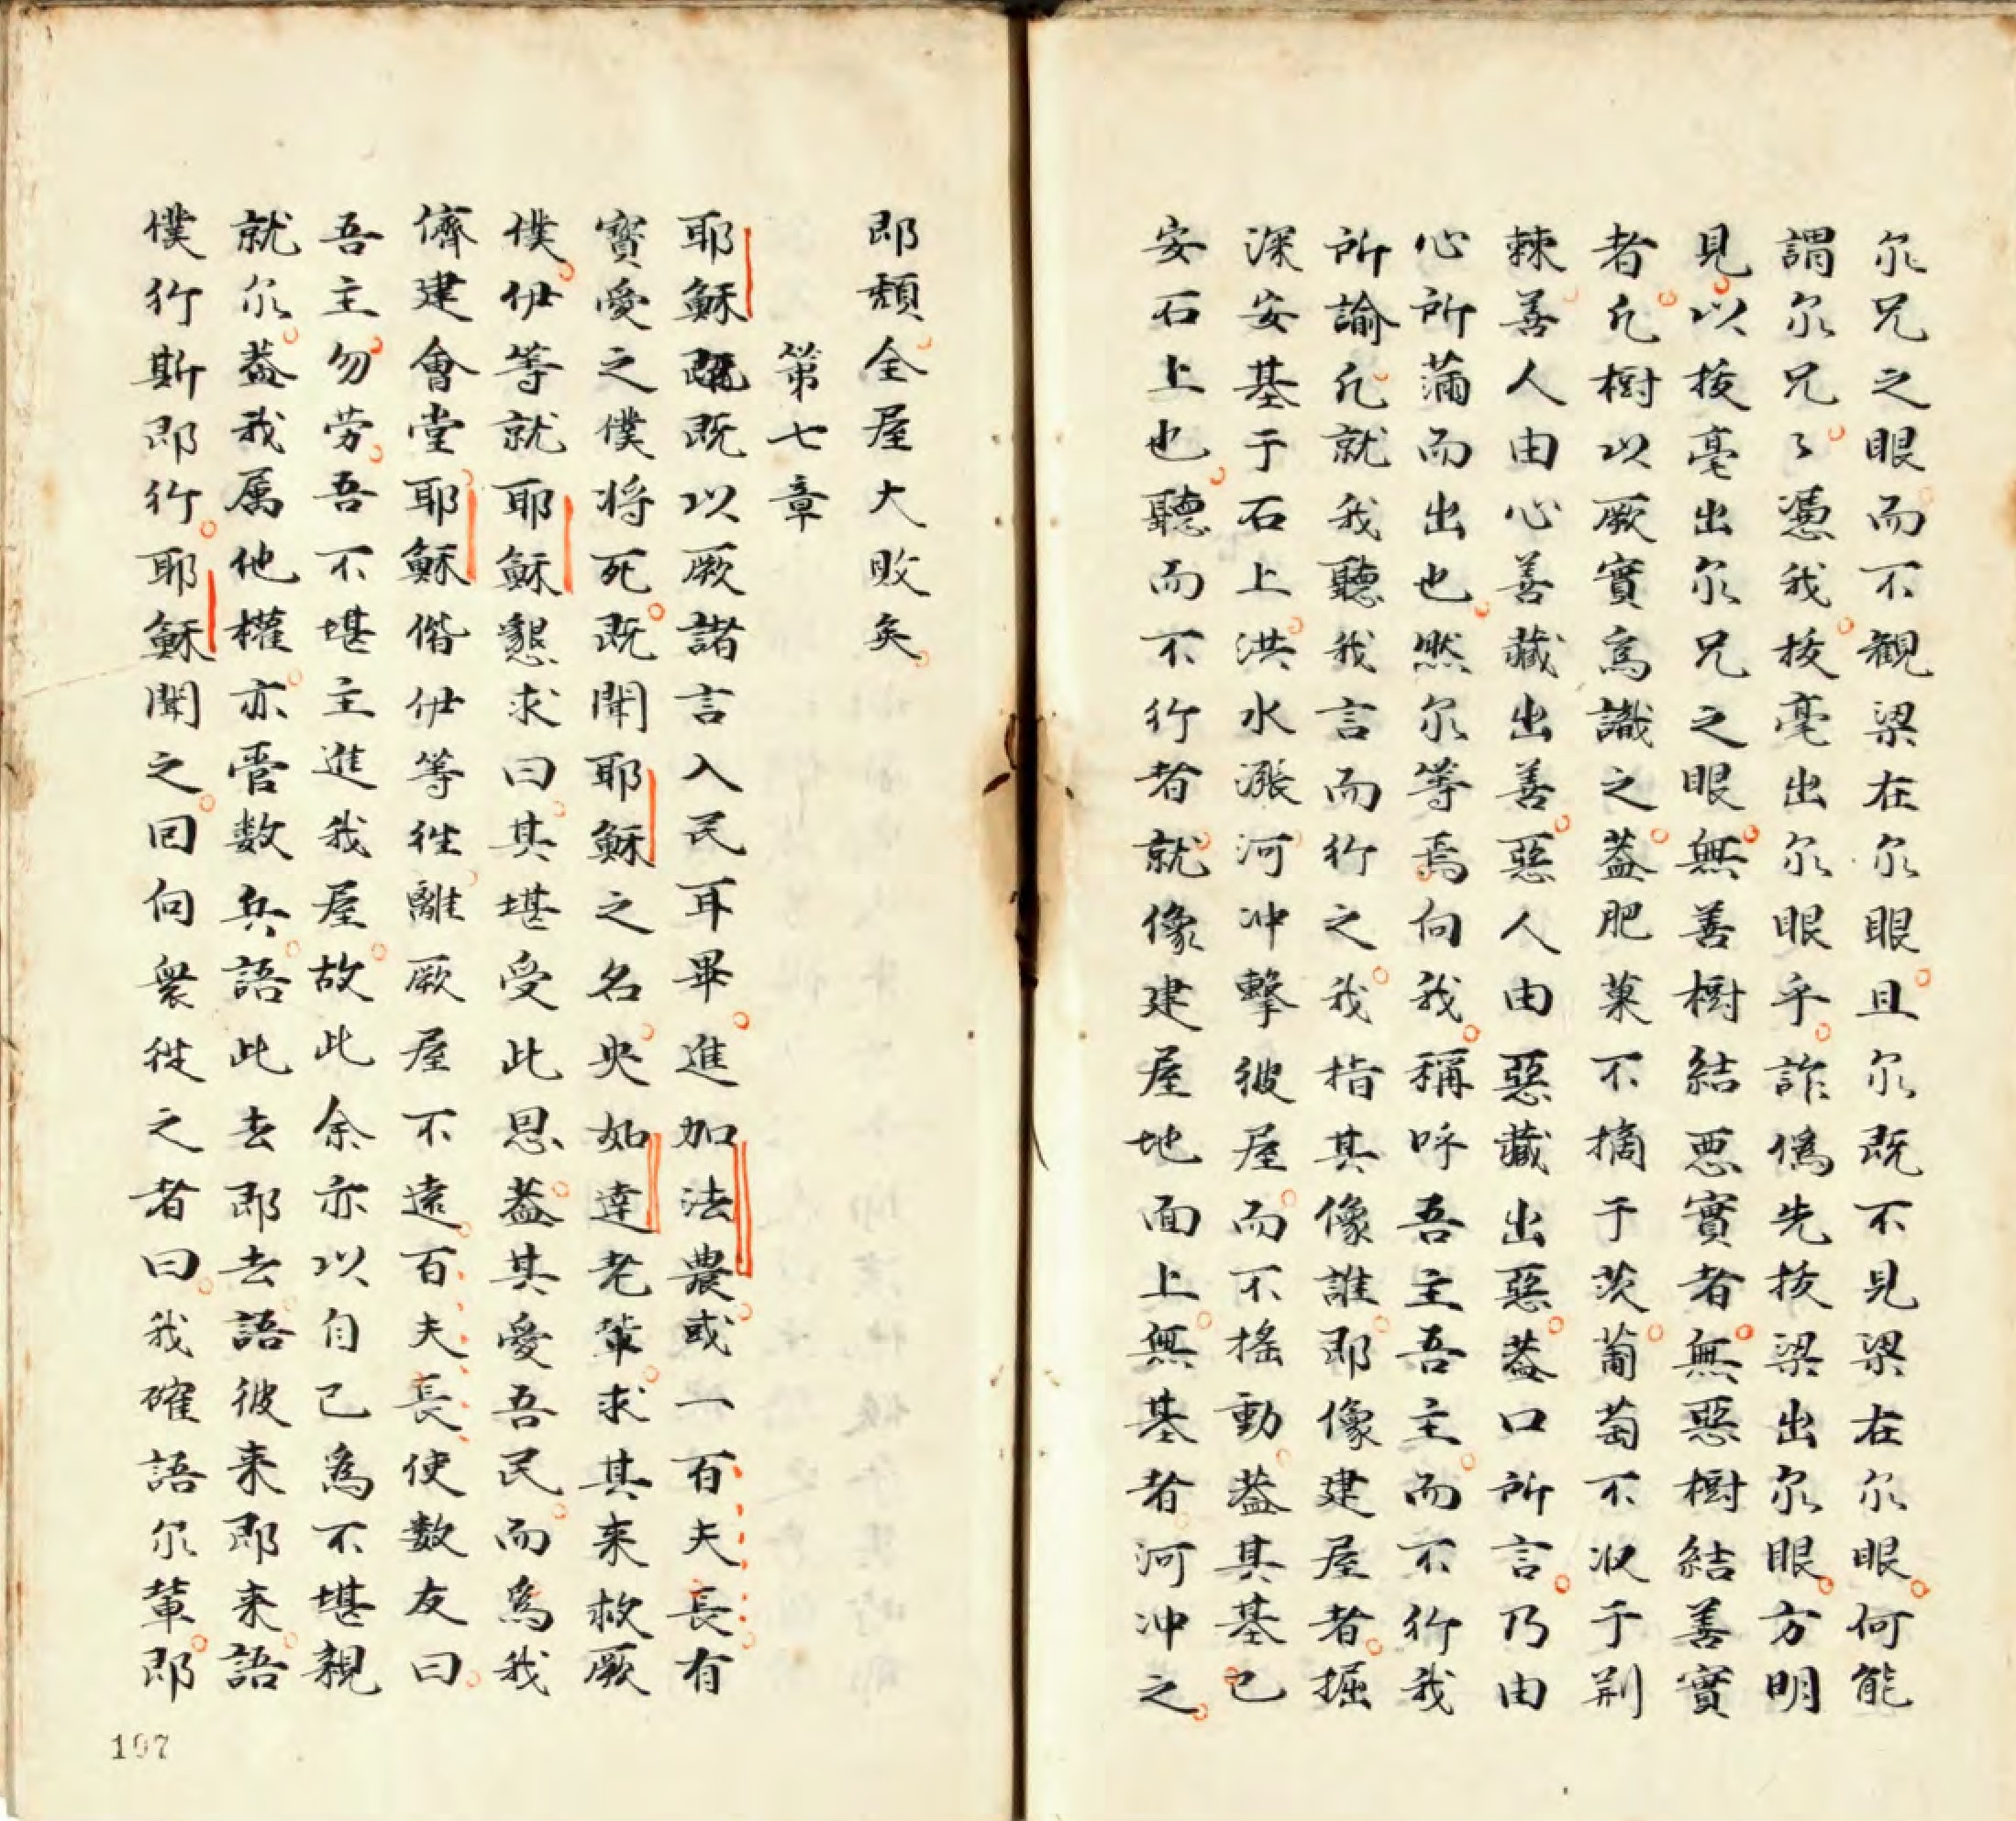 尔兄之眼而不觀梁在尔眼且尔既不見梁在尔眼何能
謂尔兄々憑我拔毫出尔眼乎詐偽先拔梁出尔眼方明
見以拔毫出尔兄之眼無善樹結悪實者無惡樹結善實
者凢樹以厥實為識之葢肥菓不摘于茨葡萄不收于荆
棘善人由心善藏出善惡人由惡藏出惡葢口所言乃由
心所蒲而出也然尔等焉向我稱呼吾主吾主而不行我
所諭凢就我聽我言而行之我指其像誰即像建屋者掘
深安基于石上洪水漲河冲擊彼屋而不搖動葢其基已
安石上也聽而不行者就像建屋地面上無基者河冲之
即頹全屋大敗矣
第七章
耶穌既既以厥諸言入民耳畢進加法農或一百夫長有
寳愛之僕将死既聞耶穌之名央如達老輩求其来救厥
僕伊等就耶穌懇求曰其堪受此恩葢其愛吾民而為我
儕建會堂耶穌偕伊等徃離厥屋不遠百夫長使数友曰
吾主勿劳吾不堪主進我屋故此余亦以自己為不堪親
就尔葢我属他權亦管数兵語此去即去語彼来即来語
僕行斯即行耶穌聞之回向衆従之者曰我確語尔輩即
197